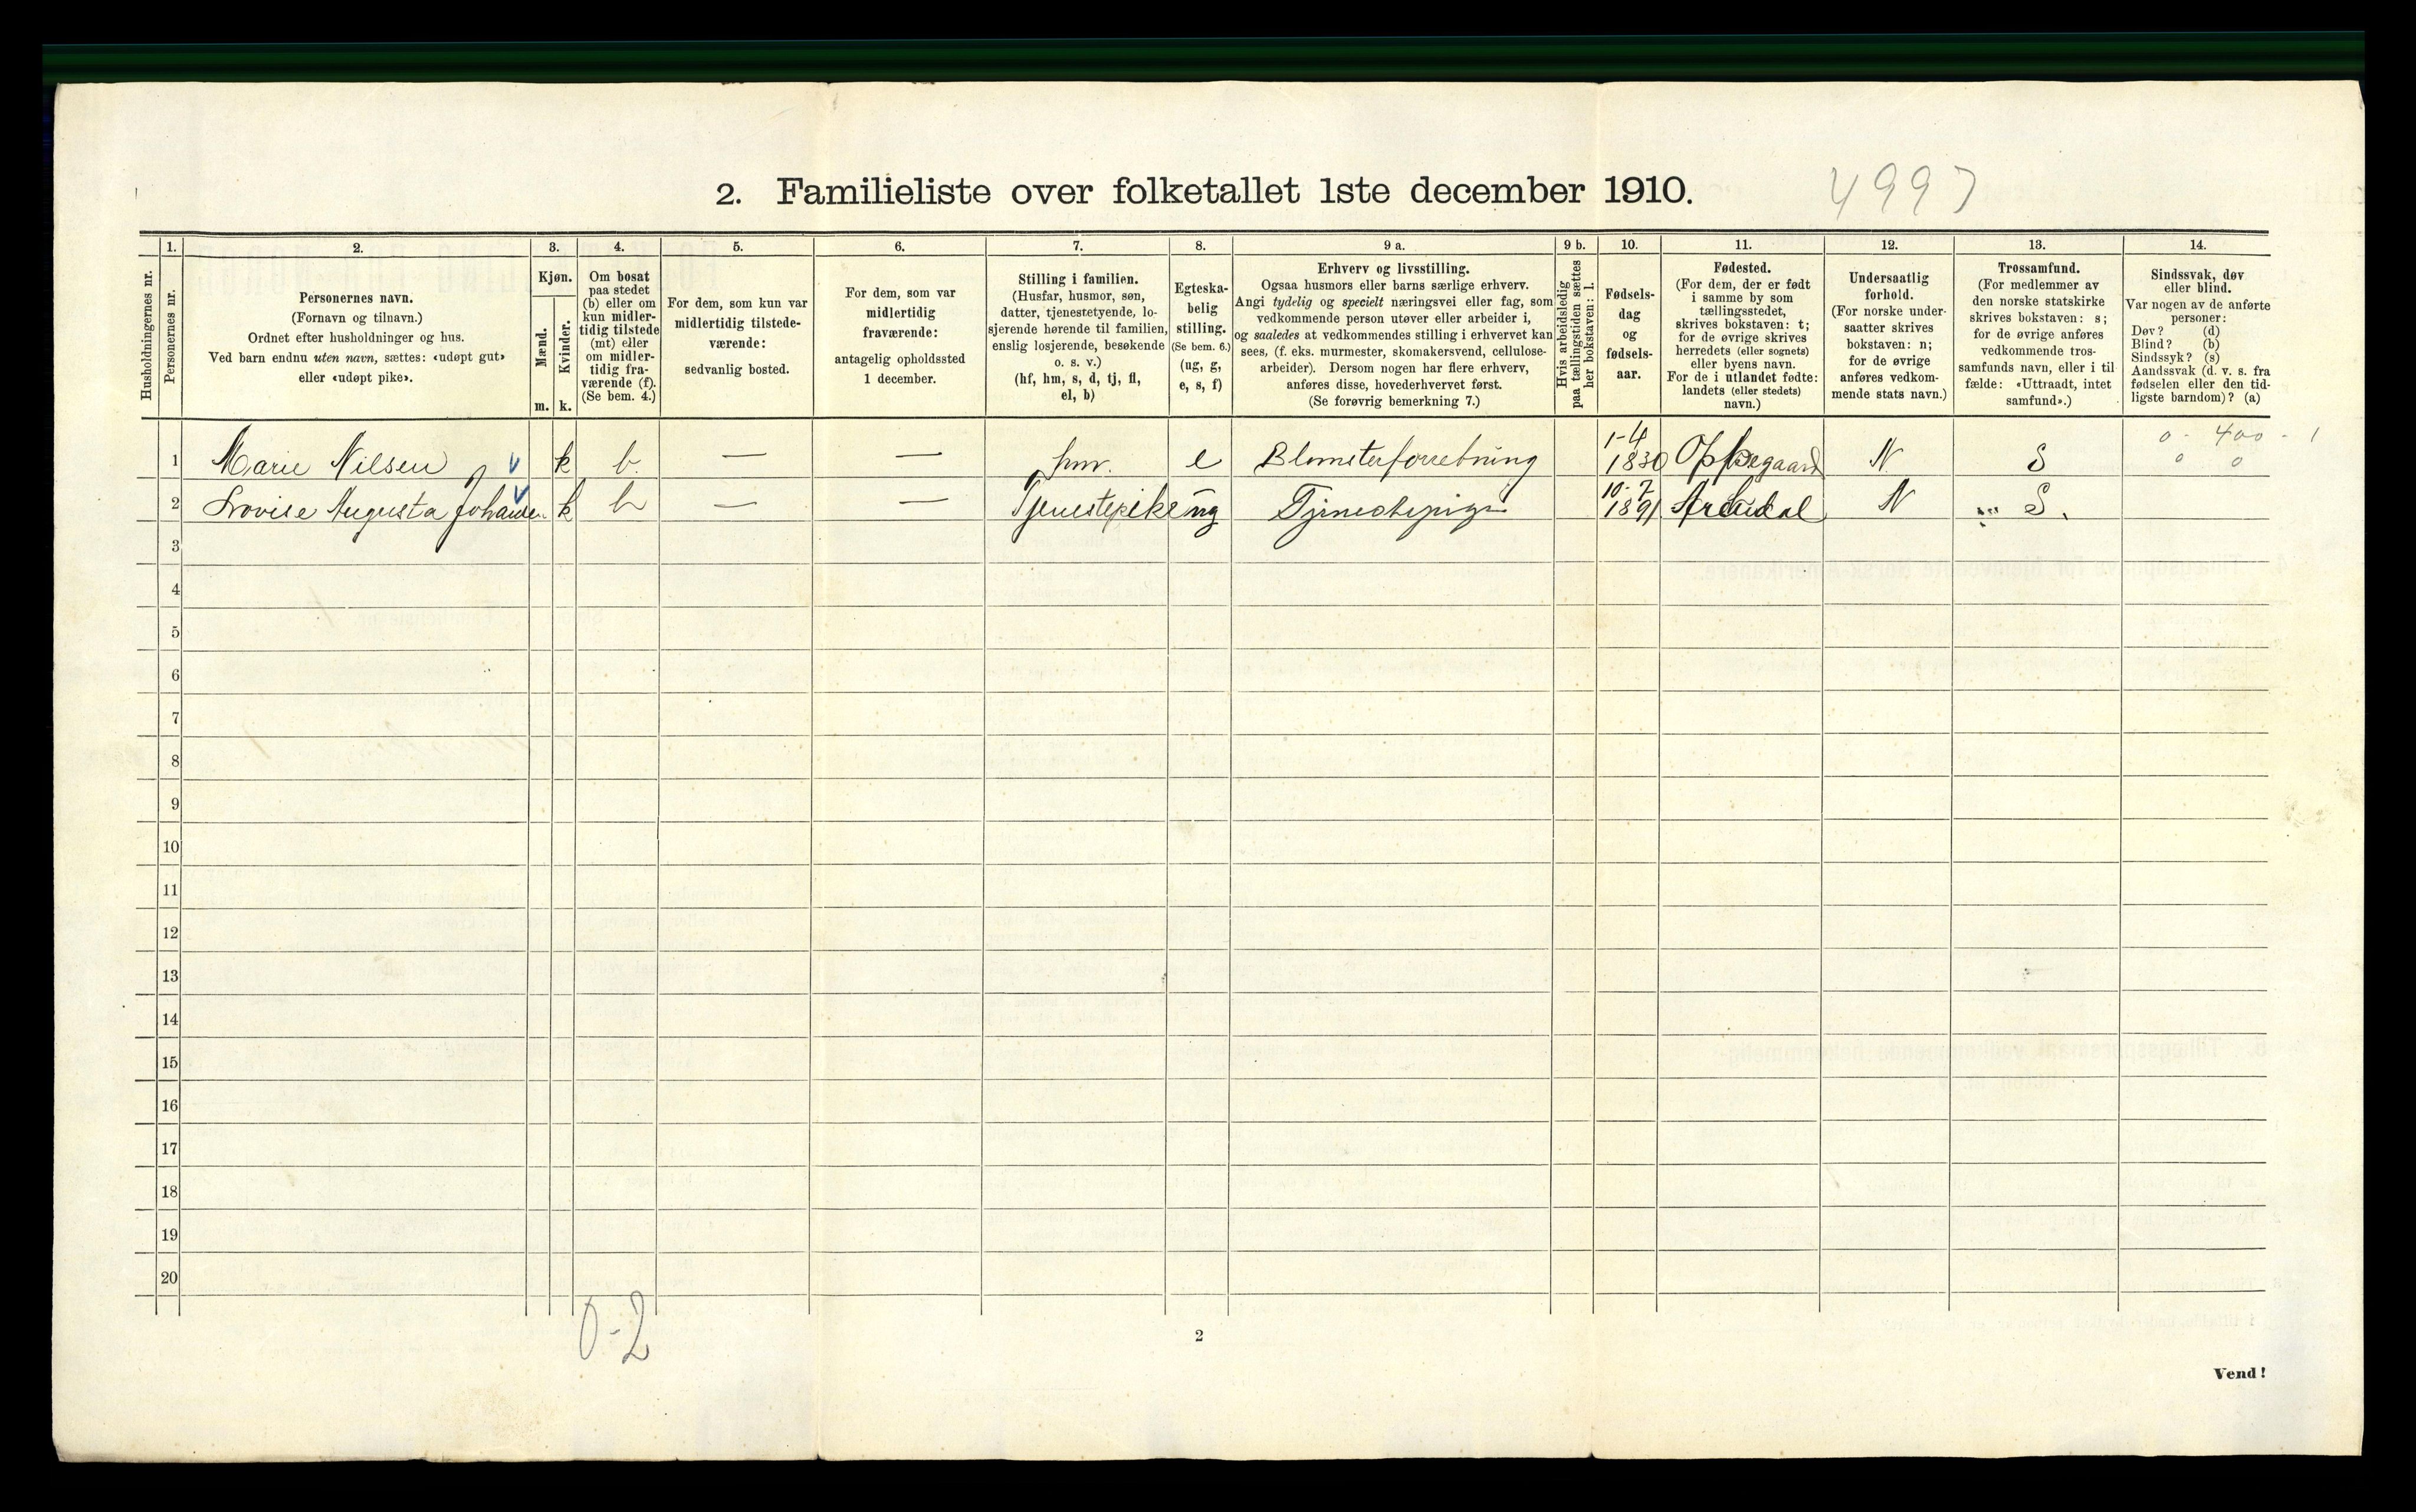 2. Familieliste over folketallet 1ste december 1910.
4997
Husholdningernes nr.
1.
Personernes nr.
2.
Personernes navn.
(Fornavn og tilnavn.)
Ordnet efter husholdninger og hus.
Ved barn endnu uten navn, sættes: «udøpt gut»
eller «udøpt pike».
3.
Kjøn.
Mænd.
Kvinder.
m. k.
4.
Om bosat
paa stedet
(b) eller om
kun midler-
tidig tilstede
(mt) eller
om midler-
tidig fra-
værende (f).
(Se bem. 4.)
5.
For dem, som kun var
midlertidig tilstede-
værende:
sedvanlig bosted.
6.
For dem, som var
midlertidig
fraværende:
antagelig opholdssted
1 december.
7.
Stilling i familien.
(Husfar, husmor, søn,
datter, tjenestetyende, lo-
sjerende hørende til familien,
enslig losjerende, besøkende
o. s. v.)
(hf, hm, s, d, tj, fl,
el, b)
8.
Egteska-
belig
stilling.
(Se bem. 6.)
(ug, g,
e, s, f)
9 a.
Erhverv og livsstilling.
Ogsaa husmors eller barns særlige erhverv.
Angi tydelig og specielt næringsvei eller fag, som
vedkommende person utøver eller arbeider i,
og saaledes at vedkommendes stilling i erhvervet kan
sees, (f. eks. murmester, skomakersvend, cellulose-
arbeider). Dersom nogen har flere erhverv,
anføres disse, hovederhvervet først.
(Se forøvrig bemerkning 7.)
9 b.
Hvis arbeidsledig
paa tællingstiden sættes
her bokstaven: l.
10.
Fødsels-
dag
og
fødsels-
aar.
11.
Fødested.
(For dem, der er født
i samme by som
tællingsstedet,
skrives bokstaven: t;
for de øvrige skrives
herredets (eller sognets)
eller byens navn.
For de i utlandet fødte:
landets (eller stedets)
navn.)
12.
Undersaatlig
forhold.
(For norske under-
saatter skrives
bokstaven: n;
for de øvrige
anføres vedkom-
mende stats navn.)
13.
Trossamfund.
(For medlemmer av
den norske statskirke
skrives bokstaven: s;
for de øvrige anføres
vedkommende tros-
samfunds navn, eller i til-
fælde: «Uttraadt, intet
samfund».)
14.
Sindssvak, døv
eller blind.
Var nogen av de anførte
personer:
Døv? (d)
Blind? (b)
Sindssyk? (s)
Aandssvak (d. v. s. fra
fødselen eller den tid-
ligste barndom)? (a)
0 - 400 - 1
1 Marie Nilsen k b. — — hm. e Blomsterforretning 1-4 1830 Oppegaard N S 0 0
2 Lovise Augusta Johansen k b — — Tjenestepike ug Tjenestepige 10-7 1891 Arendal N S.
3
4
5
6
7
8
9
10
11
12
13
14
15
16
17
18
19
20
0-2
2
Vend!